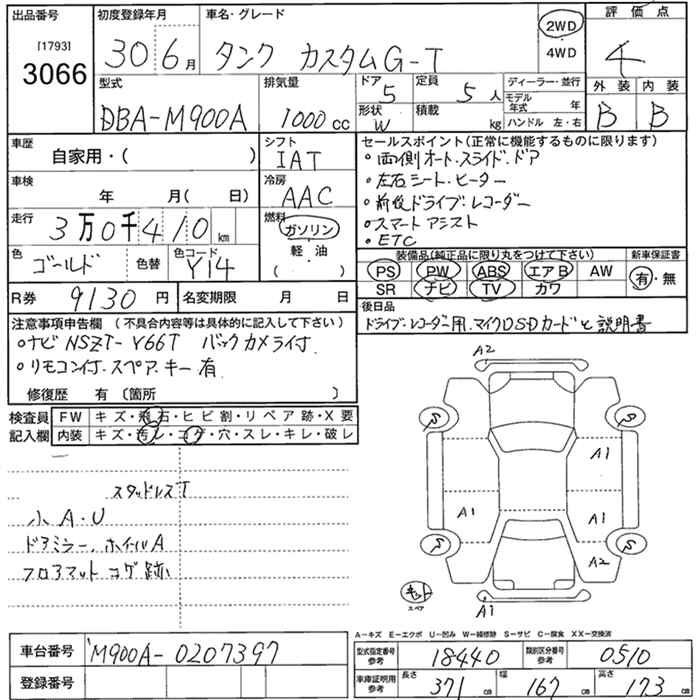 出品番号
[1793]
3066
初度登録年月
30 6月
車名・グレード
タンク カスタムG-T
2WD
4WD
評価点
4
外装 内装
B B
型式
DBA-M900A
排気量
1000cc
ドア
5
定員
5人
形状
W
積載
kg
ディーラー・並行
モデル年式 年
ハンドル 左・右
車歴
自家用・( )
シフト
IAT
車検
年 月( 日)
冷房
AAC
走行
3万0千410km
燃料
ガソリン
軽油
( )
色
ゴールド
色替
色コード
Y14
R券 9130円
名変期限 月 日
セールスポイント(正常に機能するものに限ります)
・両側オート・スライド・ドア
・左右シート・ヒーター
・前後ドライブ・レコーダー
・スマートアシスト
・ETC
装備品(純正品に限り丸をつけて下さい)
PS PW ABS エアB AW
SR ナビ TV カワ
新車保証書
有・無
後日品
ドライブ・レコーダー用、マイクロSDカードと説明書
注意事項申告欄 (不具合内容等は具体的に記入して下さい)
・ナビ NSZT-Y66T バックカメラ付.
・リモコン付.スペア.キー有.
修復歴 有 〔箇所 〕
検査員記入欄
FW キズ・飛石・ヒビ割・リペア跡・X要
内装 キズ・汚レ・コゲ・穴・スレ・キレ・破レ
スタッドレスT
小A・U
ドアミラー、ホイールA
フロアマットコゲ跡
A2
S S
A1
A1 A1
S S
A2
キット
スペア
A1
A-キズ E-エクボ U-凹み W-補修跡 S-サビ C-腐食 XX-交換済
車台番号
M900A-0207397
登録番号
型式指定番号参考
18440
類別区分番号参考
0510
車庫証明用参考
長さ 371cm
幅 167cm
高さ 173cm